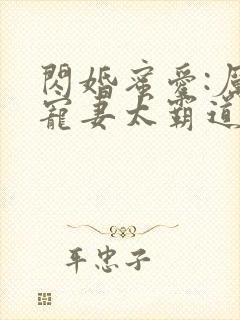 閃婚蜜愛:
寵妻太霸道
平忠子